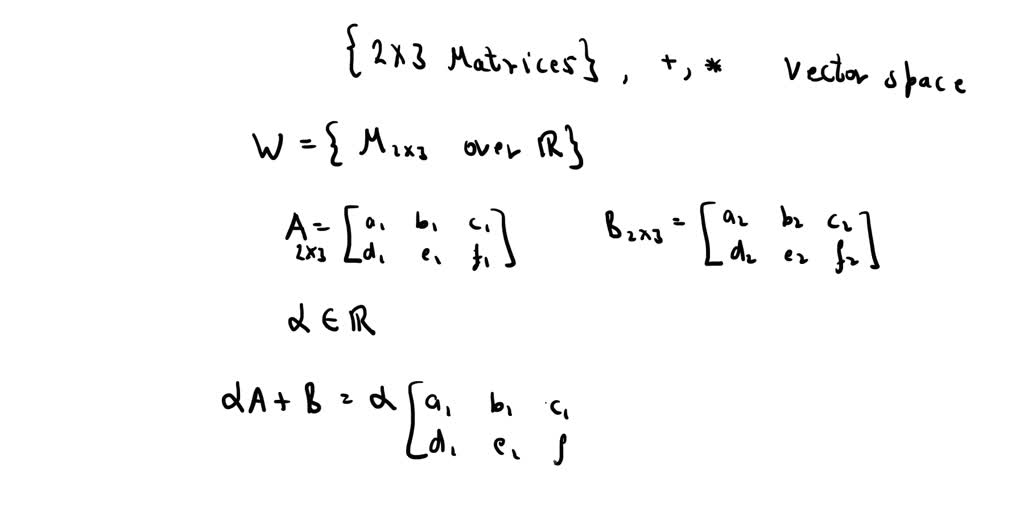 {2×3 Matrices}, +, * Vector space
W = { M₂ₓ₃ over ℝ}
A₂ₓ₃ = [a₁ b₁ c₁ B₂ₓ₃ = [a₂ b₂ c₂
d₁ e₁ f₁] d₂ e₂ f₂]
α ∈ ℝ
αA + B = α [a₁ b₁ c₁
d₁ e₁ f